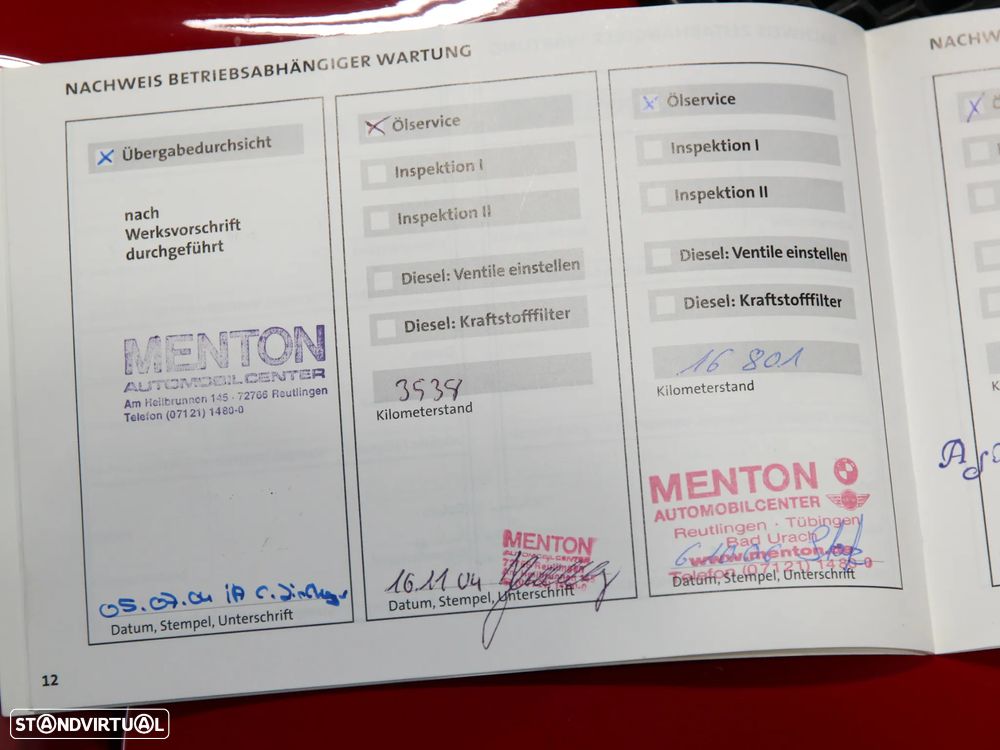 NACHWEIS BETRIEBSABHÄNGIGER WARTUNG
Übergabedurchsicht
nach
Werksvorschrift
durchgeführt
MENTON
AUTOMOBILCENTER
Am Heilbrunnen 145 · 72766 Reutlingen
Telefon (07121) 1480-0
05.07.04 iA
Datum, Stempel, Unterschrift
Ölservice
Inspektion I
Inspektion II
Diesel: Ventile einstellen
Diesel: Kraftstofffilter
3938
Kilometerstand
MENTON
AUTOMOBILCENTER
16.11.04
Datum, Stempel, Unterschrift
Ölservice
Inspektion I
Inspektion II
Diesel: Ventile einstellen
Diesel: Kraftstofffilter
16 801
Kilometerstand
MENTON
AUTOMOBILCENTER
Reutlingen · Tübingen
Bad Urach
www.menton.de
Telefon (07121) 1480-0
Datum, Stempel, Unterschrift
12
NACHW
STANDVIRTUAL